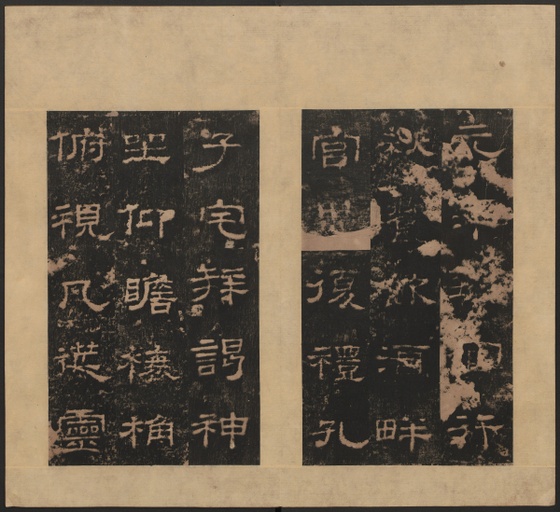 元年到官行
秋饗飲酒畔
宮畢復禮孔
子宅拜謁神
坐仰瞻榱桷
俯視几筵靈